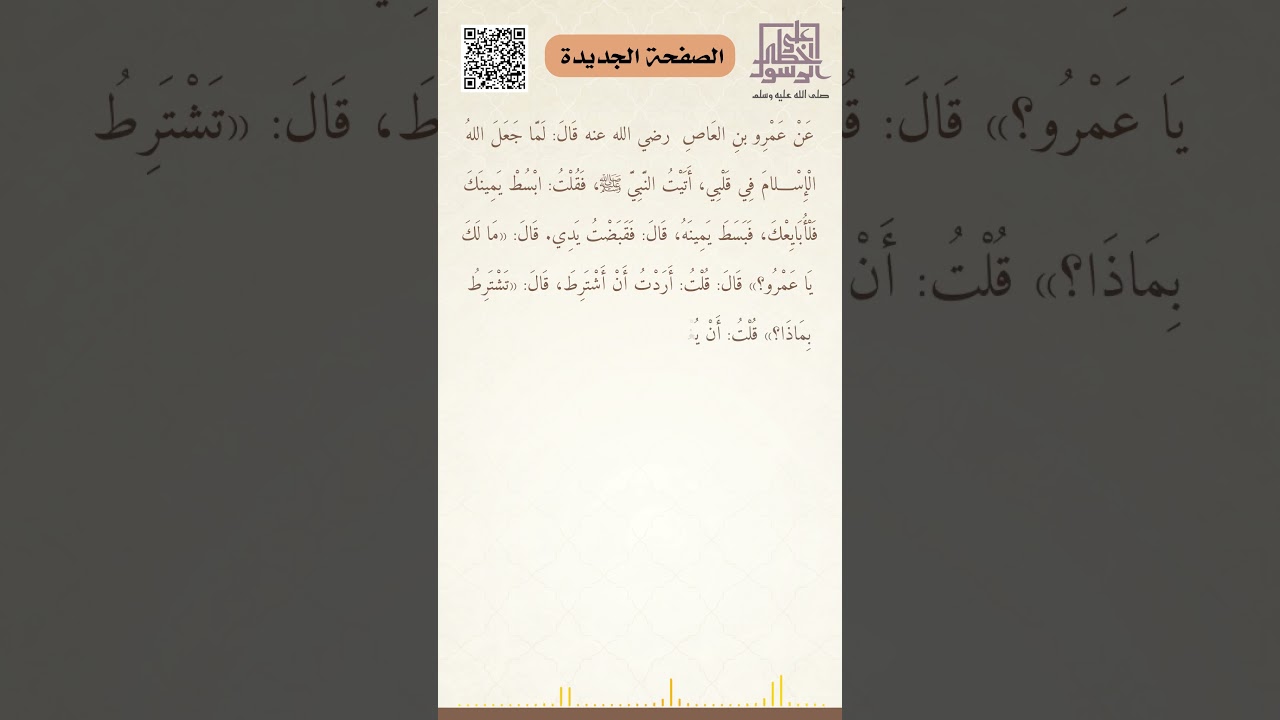 على خطى الرسول
صلى الله عليه وسلم
الصفحة الجديدة
عَنْ عَمْرِو بنِ العَاصِ رضي الله عنه قَالَ: لَمَّا جَعَلَ اللهُ
الْإِسْـــلامَ فِي قَلْبِي، أَتَيْتُ النَّبِيَّ ﷺ، فَقُلْتُ: ابْسُطْ يَمِينَكَ
فَلْأُبَايِعْكَ، فَبَسَطَ يَمِينَهُ، قَالَ: فَقَبَضْتُ يَدِي. قَالَ: «مَا لَكَ
يَا عَمْرُو؟» قَالَ: قُلْتُ: أَرَدْتُ أَنْ أَشْتَرِطَ، قَالَ: «تَشْتَرِطُ
بِمَاذَا؟» قُلْتُ: أَنْ